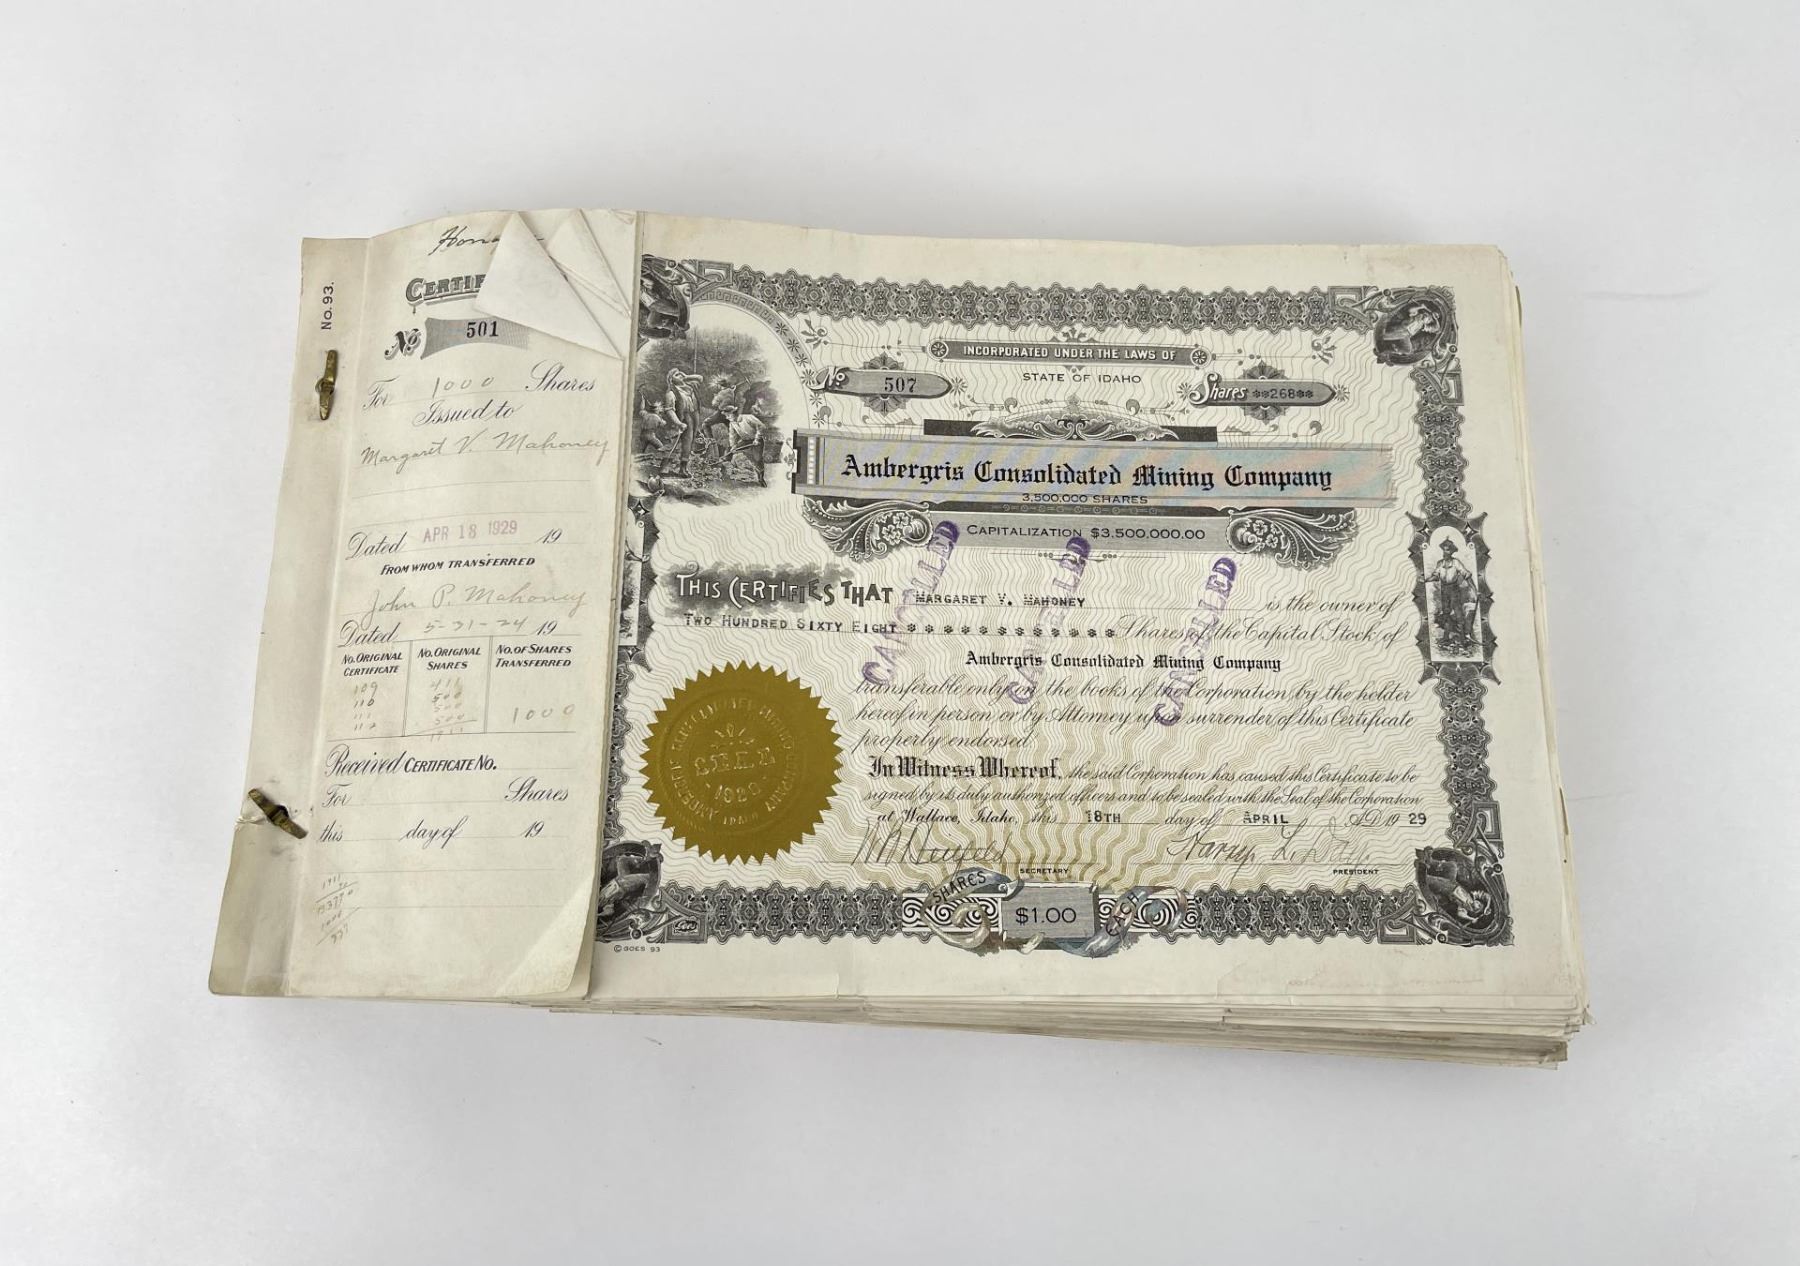 No. 93.
CERTIF
No 501
For 1000 Shares
Issued to
Margaret V. Mahoney
Dated APR 18 1929 19
FROM WHOM TRANSFERRED
John P. Mahoney
Dated 5-31-24 19
NO. ORIGINAL CERTIFICATE
NO. ORIGINAL SHARES
NO. OF SHARES TRANSFERRED
109 411
110 500
111 500
112 500 1000
1911
Received CERTIFICATE NO.
For Shares
this day of 19
INCORPORATED UNDER THE LAWS OF
STATE OF IDAHO
No 507
Shares **268**
Ambergris Consolidated Mining Company
3,500,000 SHARES
CAPITALIZATION $3,500,000.00
THIS CERTIFIES THAT MARGARET V. MAHONEY is the owner of
TWO HUNDRED SIXTY EIGHT * * * * * * * * * * * * * Shares of the Capital Stock of
Ambergris Consolidated Mining Company
transferable only on the books of the Corporation by the holder
hereof in person or by Attorney upon surrender of this Certificate
properly endorsed.
In Witness Whereof, the said Corporation has caused this Certificate to be
signed by its duly authorized officers and to be sealed with the Seal of the Corporation
at Wallace, Idaho, this 18TH day of APRIL A.D. 19 29
Harry L. Day
SECRETARY
PRESIDENT
CANCELLED
CANCELLED
CANCELLED
SHARES $1.00 EACH
© GOES 93